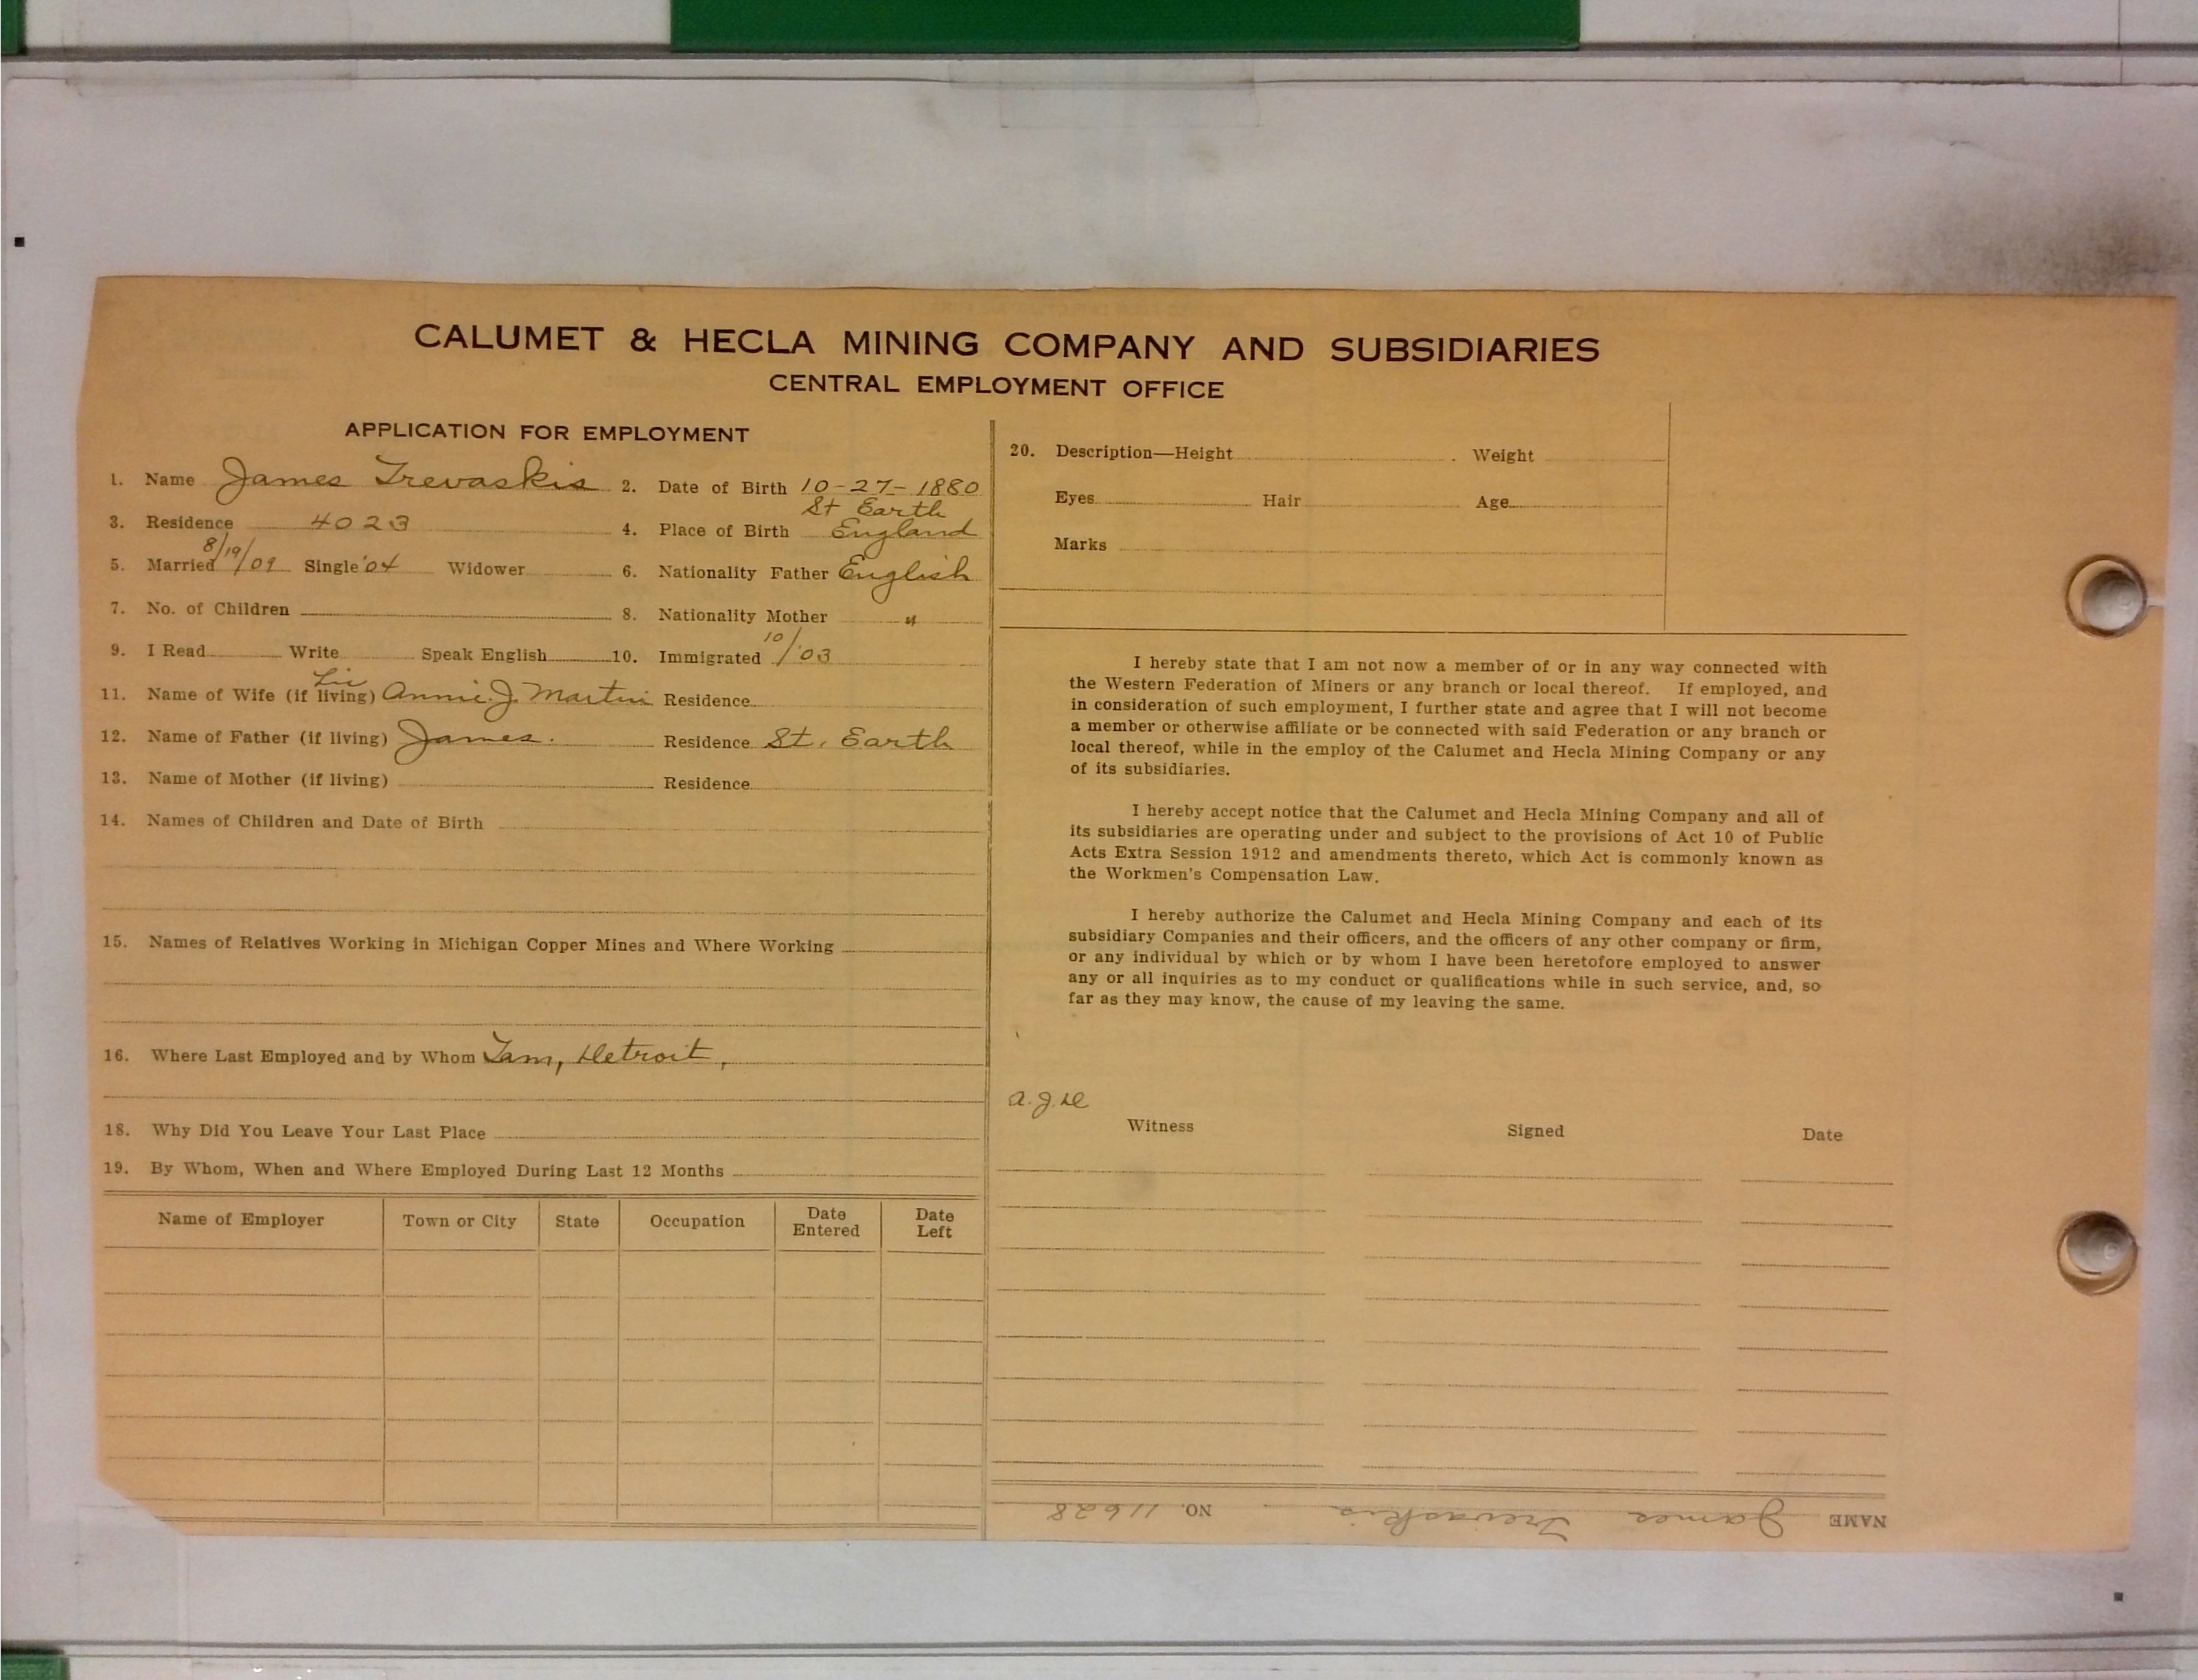 CALUMET & HECLA MINING COMPANY AND SUBSIDIARIES
CENTRAL EMPLOYMENT OFFICE
APPLICATION FOR EMPLOYMENT
1. Name James Trevaskis 2. Date of Birth 10-27-1880
St Earth
3. Residence 4023 4. Place of Birth England
5. Married 8/19/09 Single '04 Widower 6. Nationality Father English
7. No. of Children 8. Nationality Mother "
9. I Read Write Speak English 10. Immigrated 10/'03
11. Name of Wife (if living) Annie J. Martin Residence
12. Name of Father (if living) James. Residence St. Earth
13. Name of Mother (if living) Residence
14. Names of Children and Date of Birth
15. Names of Relatives Working in Michigan Copper Mines and Where Working
16. Where Last Employed and by Whom Tam, Detroit,
18. Why Did You Leave Your Last Place
19. By Whom, When and Where Employed During Last 12 Months
Name of Employer Town or City State Occupation Date Entered Date Left
20. Description—Height Weight
Eyes Hair Age
Marks
I hereby state that I am not now a member of or in any way connected with
the Western Federation of Miners or any branch or local thereof. If employed, and
in consideration of such employment, I further state and agree that I will not become
a member or otherwise affiliate or be connected with said Federation or any branch or
local thereof, while in the employ of the Calumet and Hecla Mining Company or any
of its subsidiaries.
I hereby accept notice that the Calumet and Hecla Mining Company and all of
its subsidiaries are operating under and subject to the provisions of Act 10 of Public
Acts Extra Session 1912 and amendments thereto, which Act is commonly known as
the Workmen's Compensation Law.
I hereby authorize the Calumet and Hecla Mining Company and each of its
subsidiary Companies and their officers, and the officers of any other company or firm,
or any individual by which or by whom I have been heretofore employed to answer
any or all inquiries as to my conduct or qualifications while in such service, and, so
far as they may know, the cause of my leaving the same.
a.J.D
Witness Signed Date
NAME James Trevaskis NO. 11628